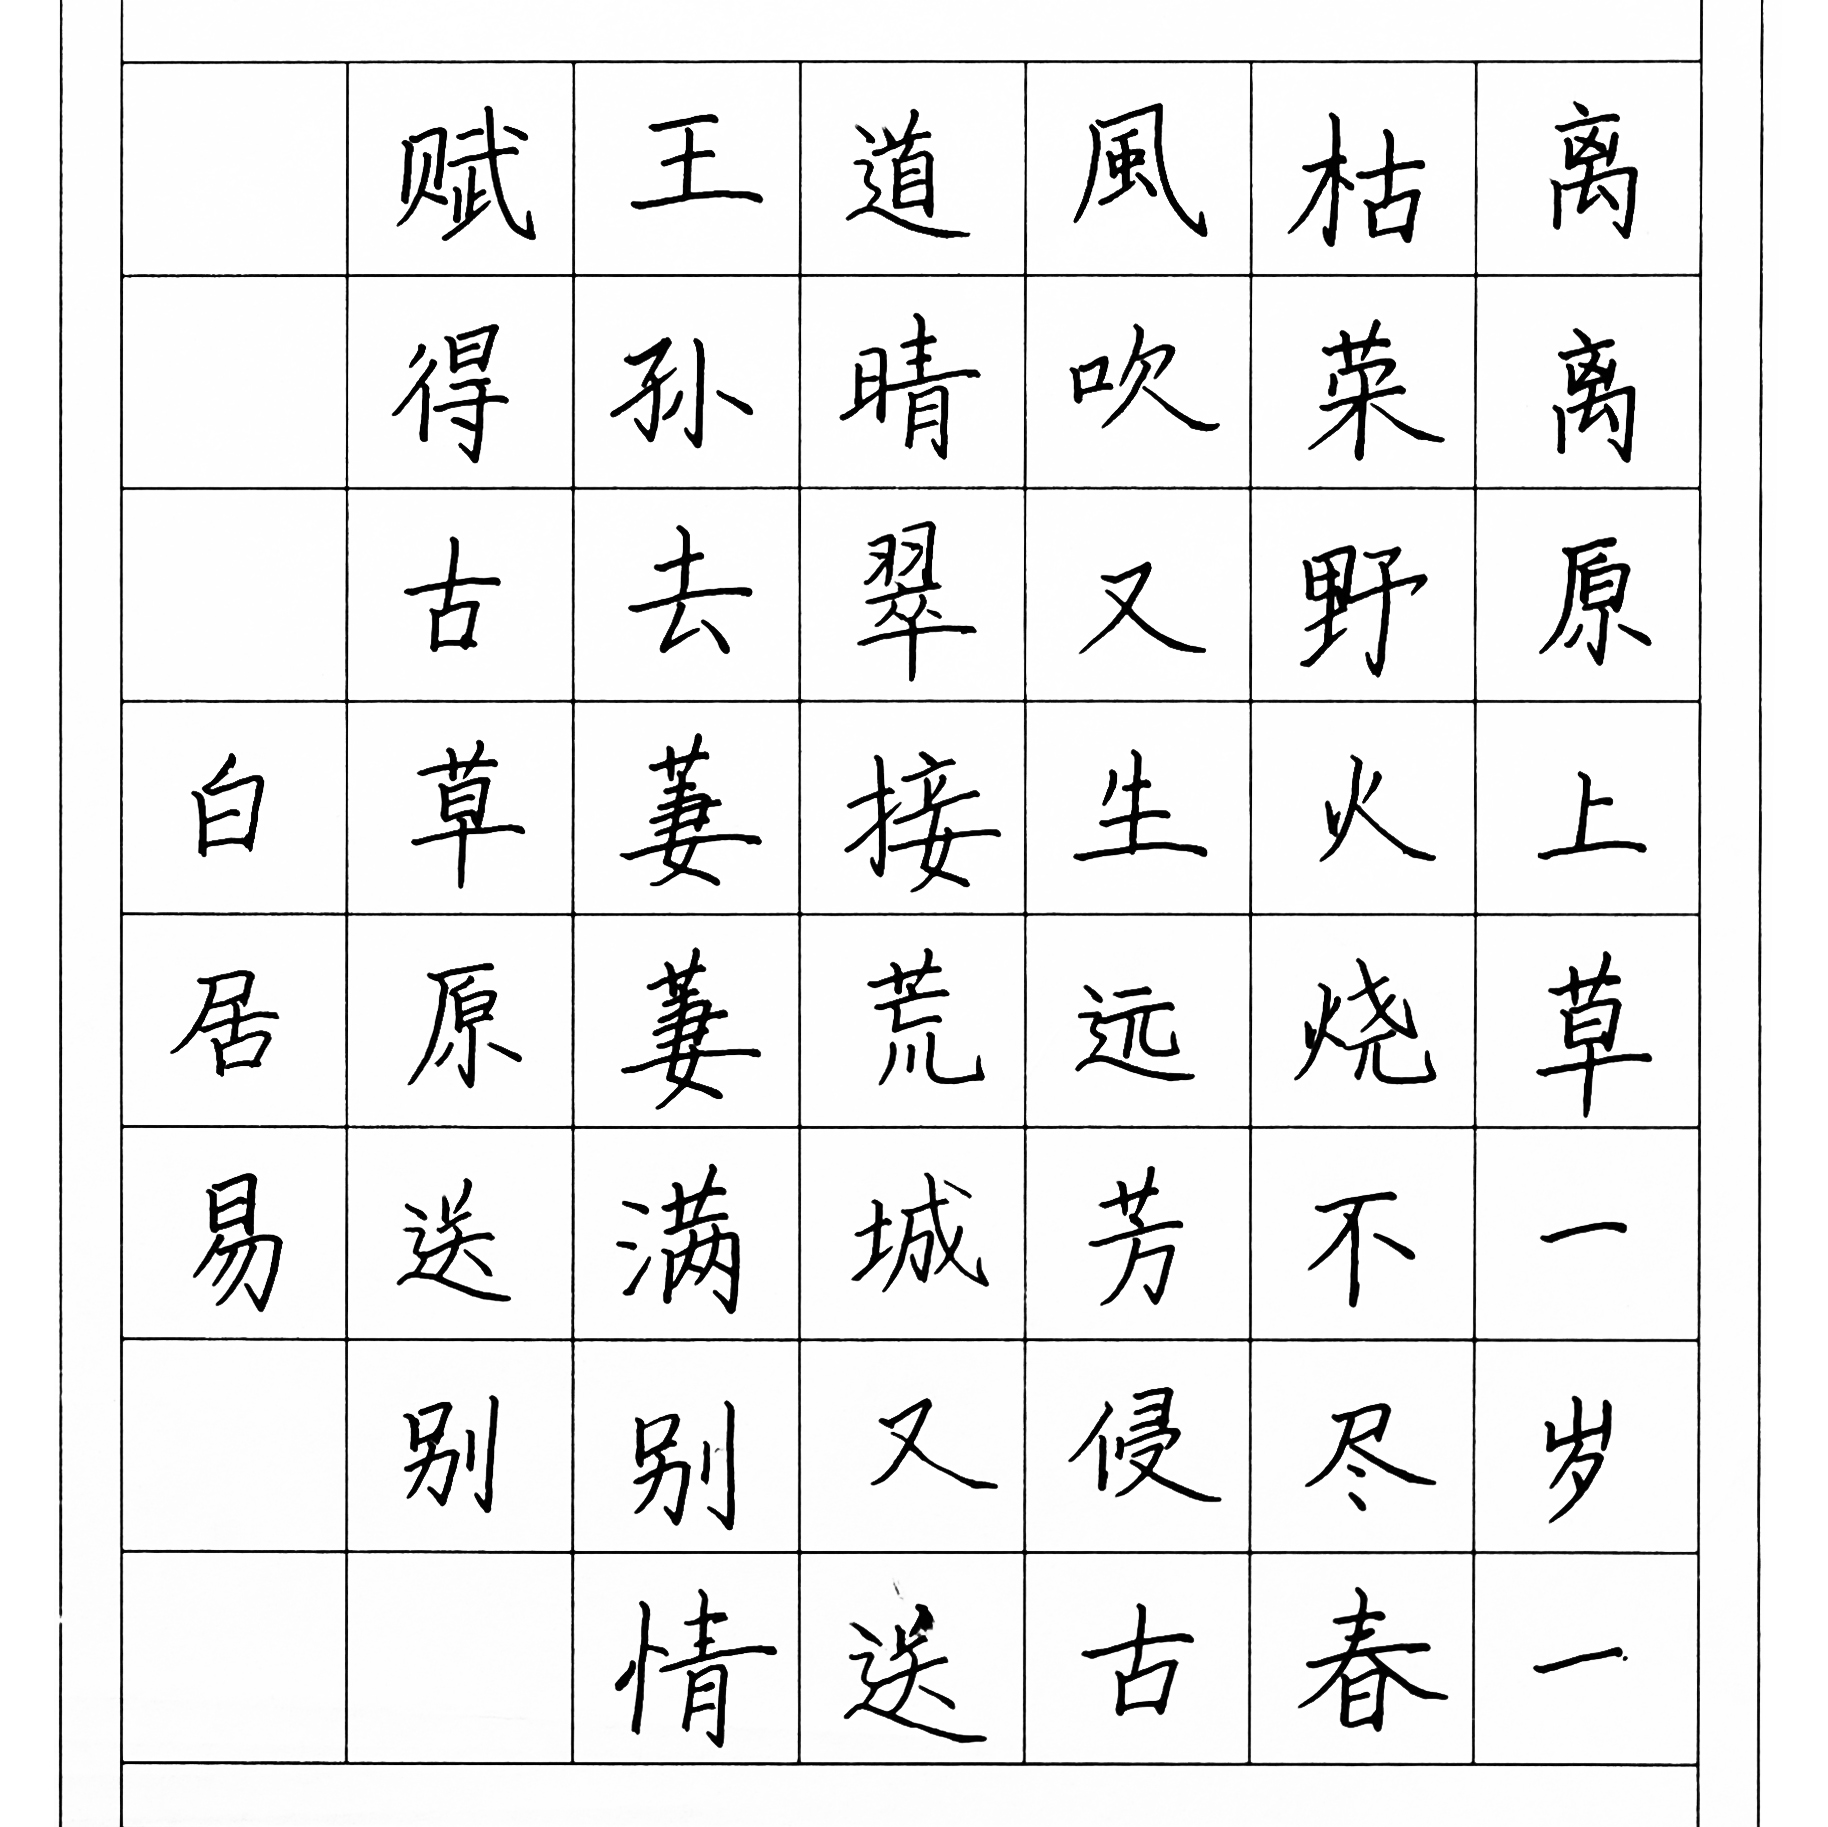 离离原上草一岁一
枯荣野火烧不尽春
風吹又生远芳侵古
道晴翠接荒城又送
王孙去萋萋满别情
赋得古草原送别
白居易